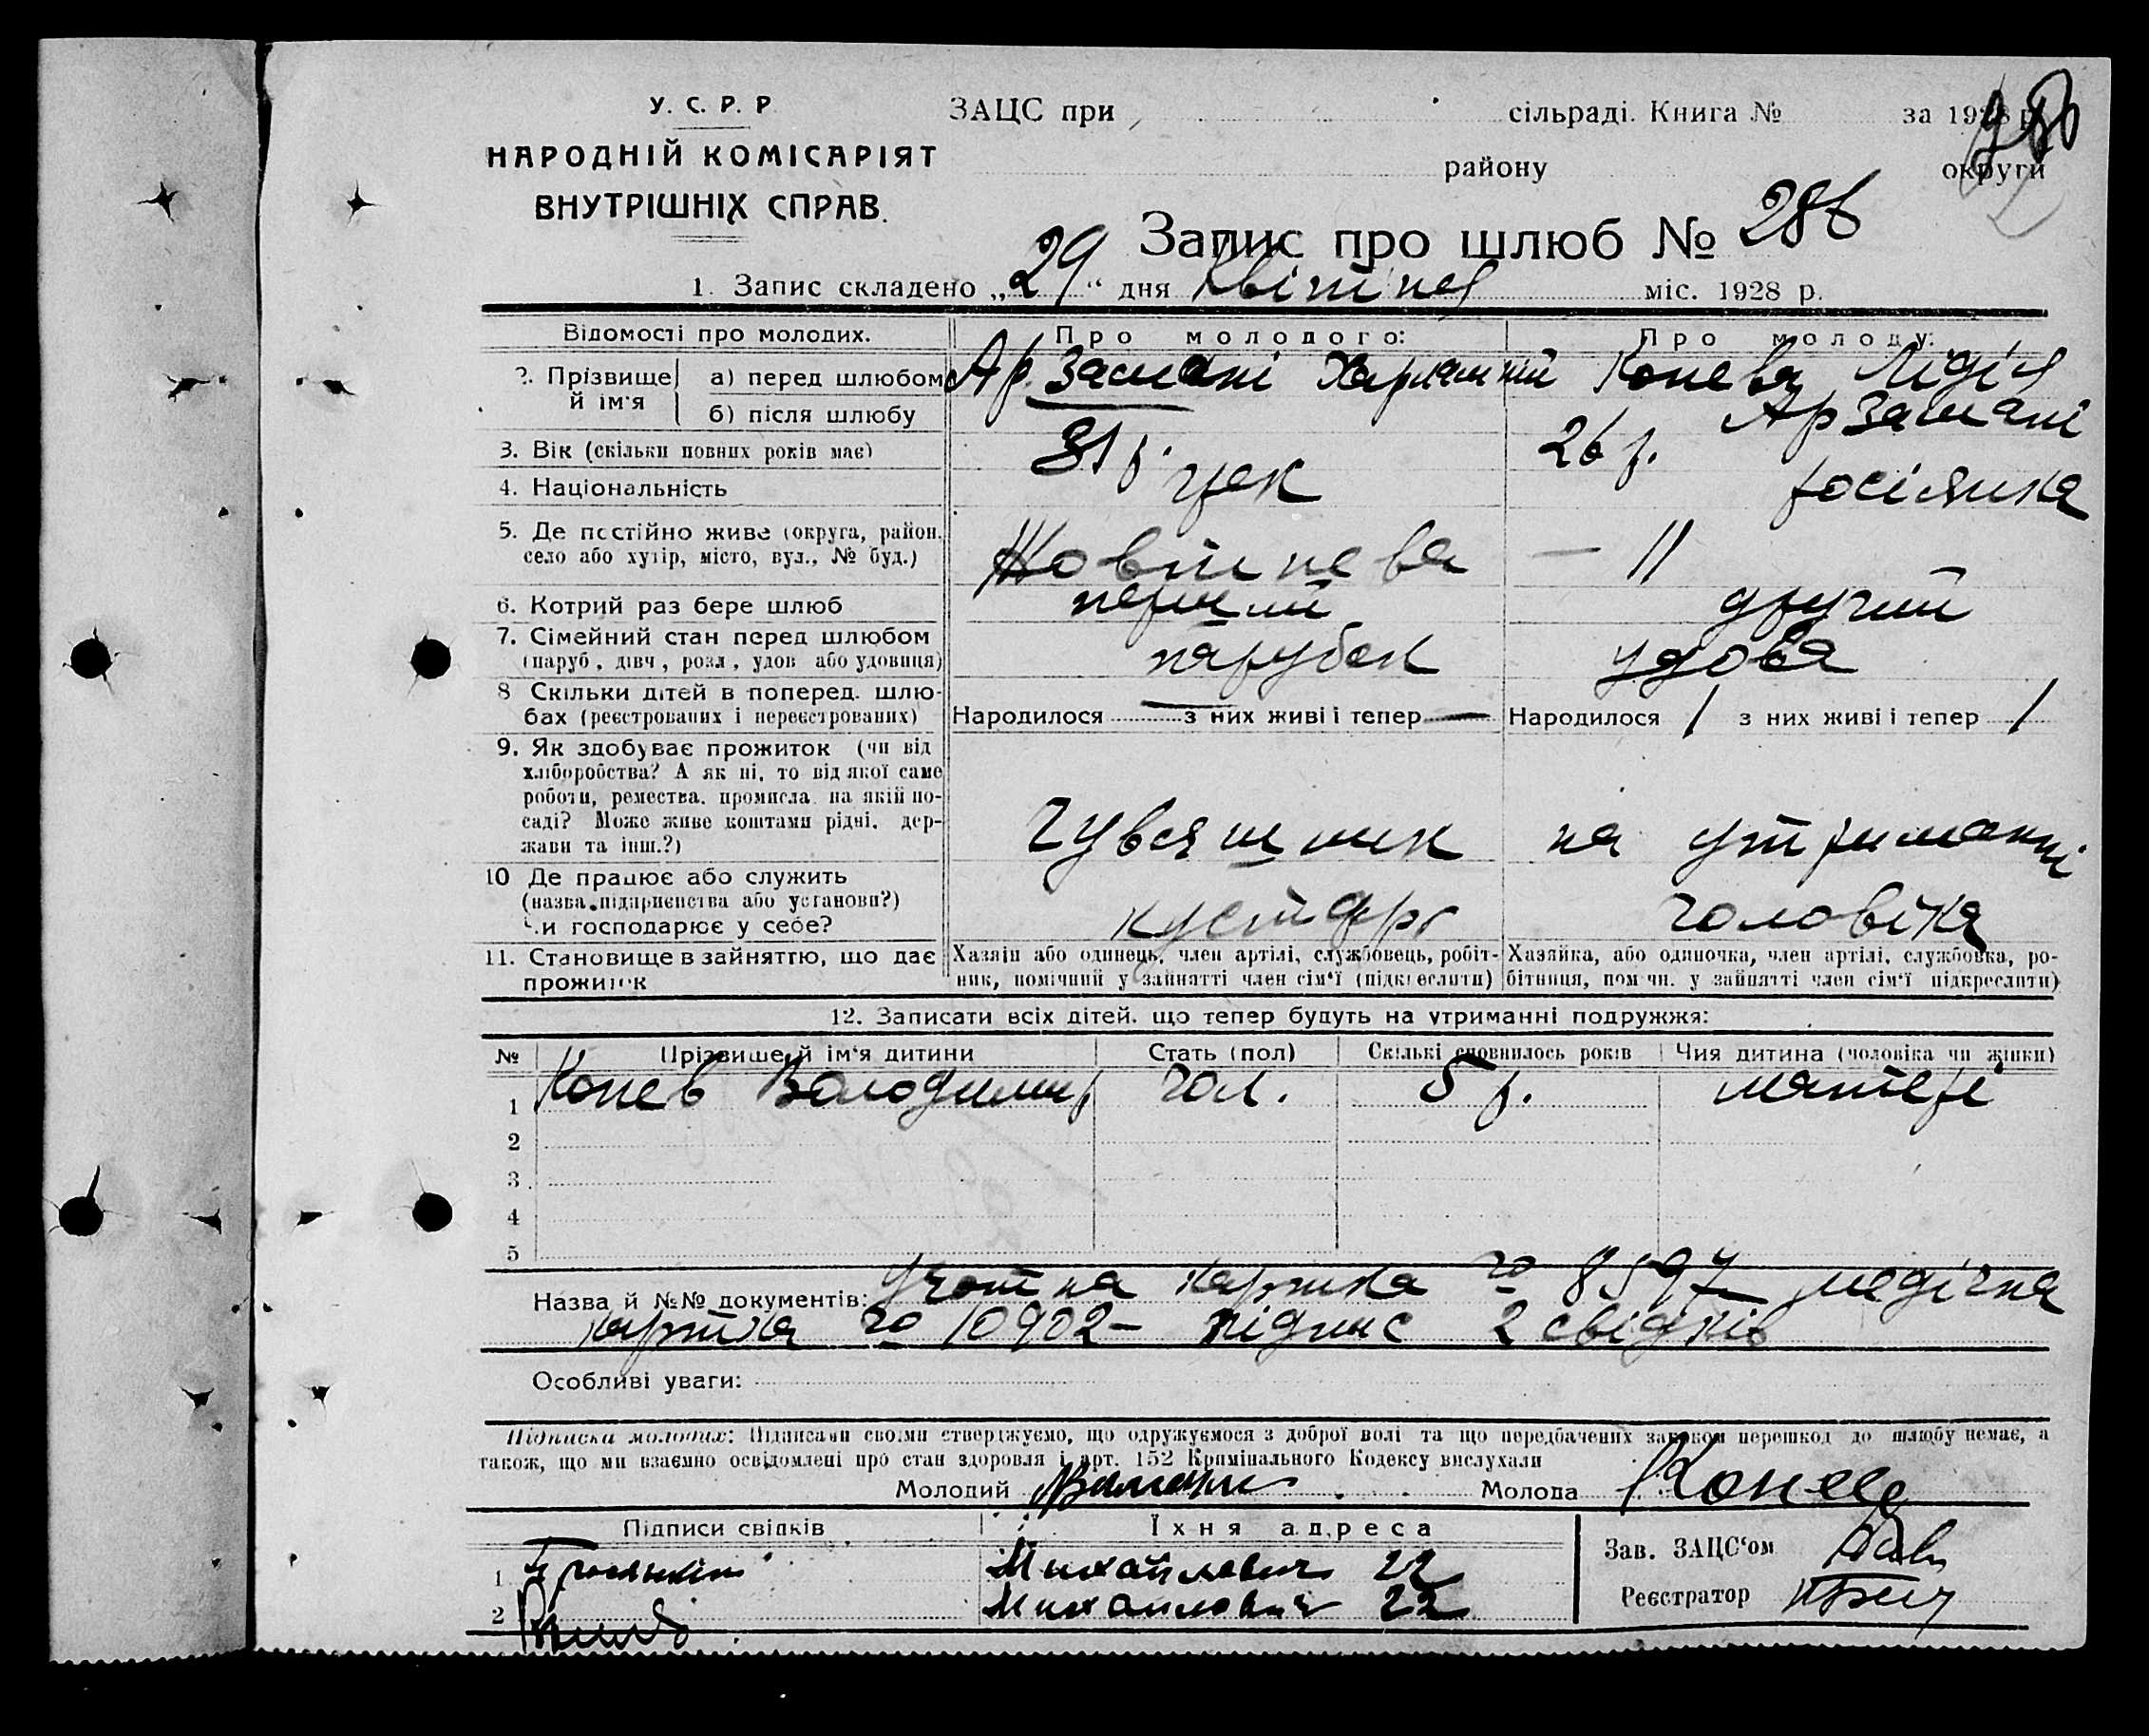 У. С. Р. Р.
НАРОДНІЙ КОМІСАРІЯТ
ВНУТРІШНІХ СПРАВ.
ЗАЦС при сільраді. Книга № за 1928 р.
району округи
Запис про шлюб № 286
1. Запис складено „29“ дня Квітня міс. 1928 р.
Відомості про молодих. Про молодого: Про молоду:
2. Прізвище й ім'я а) перед шлюбом Арзамані Харлампій Конева Лідія
б) після шлюбу Арзамані
3. Вік (скільки повних років має) 31 р. 26 р.
4. Національність грек росіянка
5. Де постійно живе (округа, район, село або хутір, місто, вул., № буд.) Жовтнева — //
6. Котрий раз бере шлюб перший другий
7. Сімейний стан перед шлюбом (паруб., дівч., розл., удов або удовиця) парубок удова
8 Скільки дітей в поперед. шлюбах (реєстрованих і нереєстрованих) Народилося — з них живі і тепер — Народилося 1 з них живі і тепер 1
9. Як здобуває прожиток (чи від хліборобства? А як ні, то від якої саме роботи, ремества, промисла, на якій посаді? Може живе коштами рідні, держави та інш.?) Чувяшник на утриманні
10 Де працює або служить (назва підприенства або установи?) Чи господарює у себе? кустарь чоловіка
11. Становище в зайняттю, що дає прожиток
Хазяїн або одинець, член артілі, службовець, робітник, помічний у зайнятті член сім'ї (підкреслити)
Хазяйка, або одиночка, член артілі, службовка, робітниця, пом чн. у зайнятті член сім'ї підкреслити)
12. Записати всіх дітей, що тепер будуть на утриманні подружжя:
№ Прізвище й ім'я дитини Стать (пол) Скількі сповнилось років Чия дитина (чоловіка чи жінки)
1 Конев Володимир чол. 5 р. матері
2
3
4
5
Назва й №№ документів: Учотна картка № 8597 медічна
картка № 10902 – підпис 2 свідків
Особливі уваги:
Підписка молодих: Підписами своїми стверджуємо, що одружуємося з доброї волі та що передбачених законом перешкод до шлюбу немає, а
також, що ми взаємно освідомлені про стан здоровля і арт. 152 Кримінального Кодексу вислухали
Молодий Молода Конева
Підписи свідків Їхня адреса
1 Михайловича 22
2 Михайловича 22
Зав. ЗАЦС'ом
Реєстратор